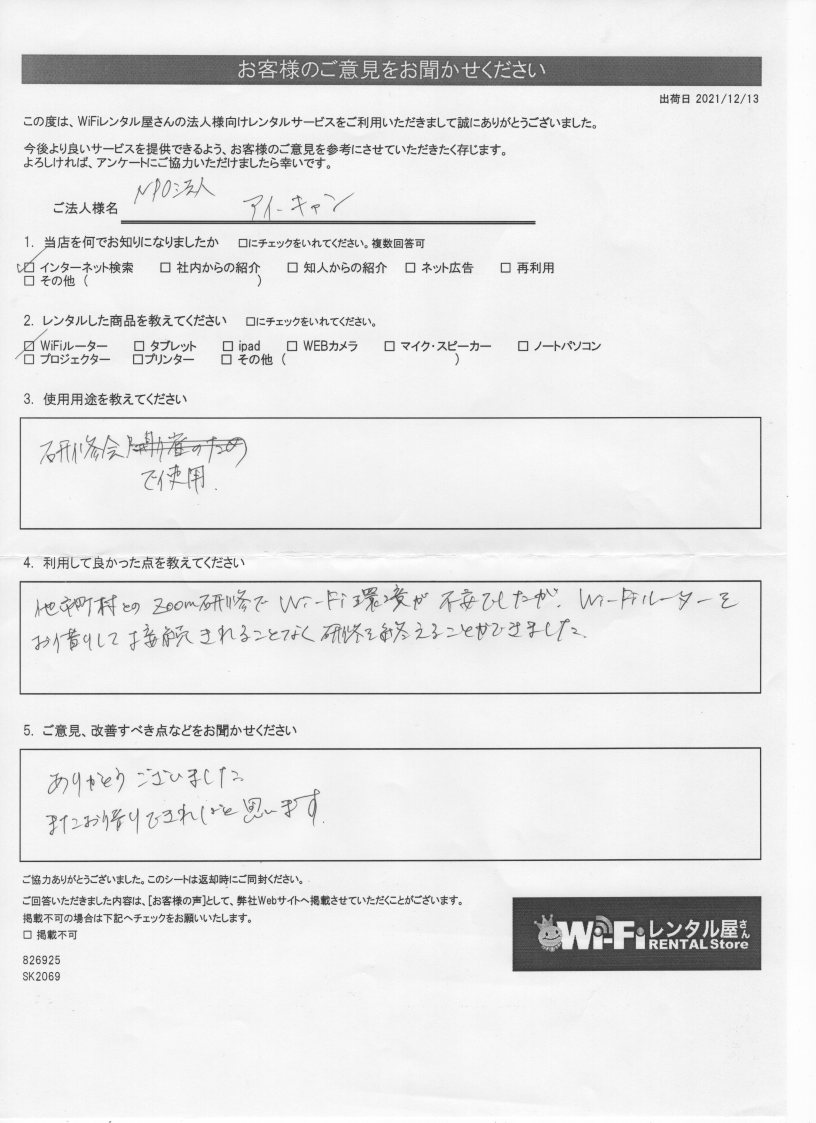 お客様のご意見をお聞かせください
出荷日 2021/12/13
この度は、WiFiレンタル屋さんの法人様向けレンタルサービスをご利用いただきまして誠にありがとうございました。
今後より良いサービスを提供できるよう、お客様のご意見を参考にさせていただきたく存じます。
よろしければ、アンケートにご協力いただけましたら幸いです。
ご法人様名 NPO法人 アイ-キャン
1. 当店を何でお知りになりましたか □にチェックをいれてください。複数回答可
☑ インターネット検索 □ 社内からの紹介 □ 知人からの紹介 □ ネット広告 □ 再利用
□ その他 ( )
2. レンタルした商品を教えてください □にチェックをいれてください。
☑ WiFiルーター □ タブレット □ ipad □ WEBカメラ □ マイク・スピーカー □ ノートパソコン
□ プロジェクター □プリンター □ その他 ( )
3. 使用用途を教えてください
研修会
で使用.
4. 利用して良かった点を教えてください
他市町村との Zoom研修で Wi-Fi環境が不安でしたが、Wi-Fiルーターを
お借りして接続されることなく研修を終えることができました.
5. ご意見、改善すべき点などをお聞かせください
ありがとうございました
またお借りできればと思います.
ご協力ありがとうございました。このシートは返却時にご同封ください。
ご回答いただきました内容は、[お客様の声]として、弊社Webサイトへ掲載させていただくことがございます。
掲載不可の場合は下記へチェックをお願いいたします。
□ 掲載不可
826925
SK2069
Wi-Fiレンタル屋さん
RENTAL Store